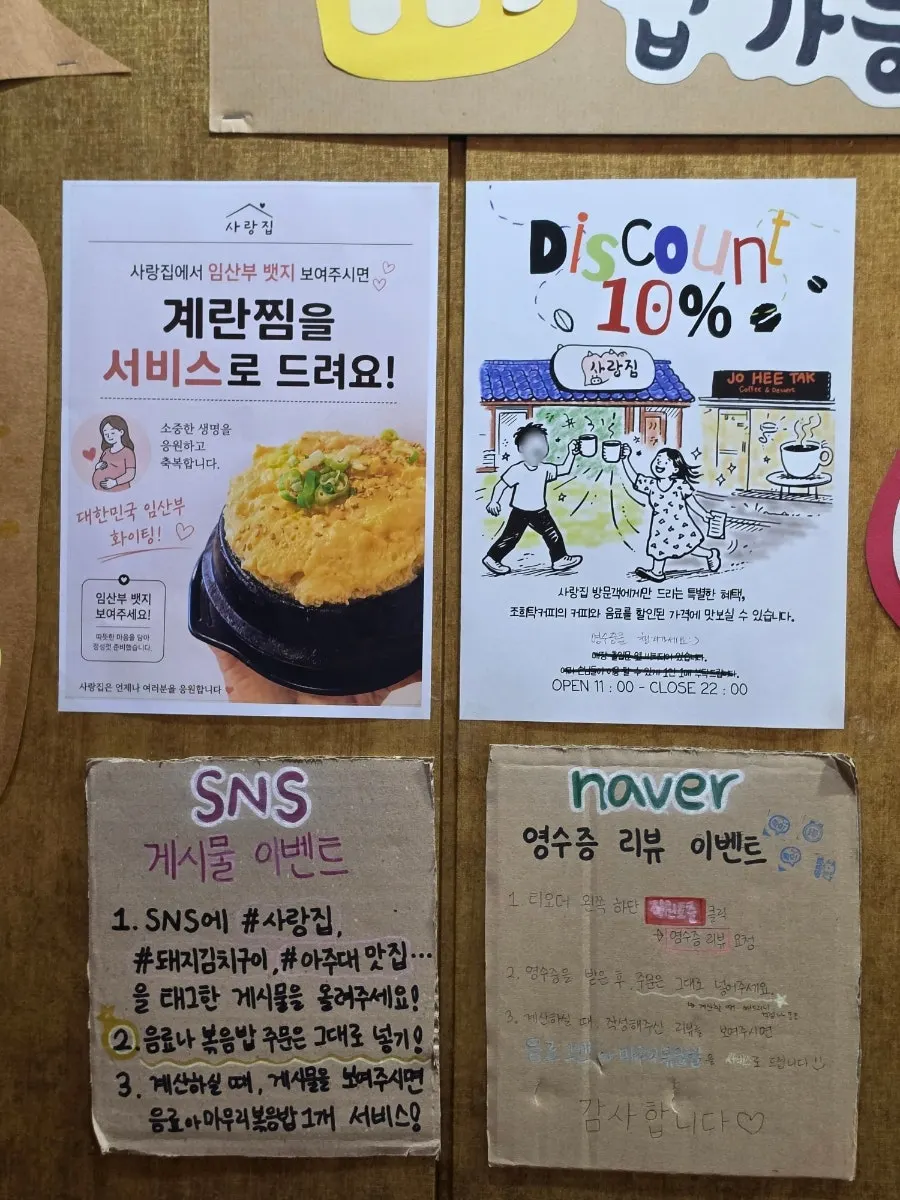 밥 가능
사랑집
사랑집에서 임산부 뱃지 보여주시면
계란찜을
서비스로 드려요!
소중한 생명을
응원하고
축복합니다.
대한민국 임산부
화이팅!
임산부 뱃지
보여주세요!
따뜻한 마음을 담아
정성껏 준비했습니다.
사랑집은 언제나 여러분을 응원합니다
Discount
10%
사랑집
JO HEE TAK
Coffee & Dessert
사랑집 방문객에게만 드리는 특별한 혜택,
조희탁커피의 커피와 음료를 할인된 가격에 맛보실 수 있습니다.
영수증을 챙겨가세요:)
OPEN 11 : 00 - CLOSE 22 : 00
SNS
게시물 이벤트
1. SNS에 #사랑집,
#돼지김치구이, #아주대 맛집...
을 태그한 게시물을 올려주세요!
2. 음료나 볶음밥 주문은 그대로 넣기!
3. 계산하실 때, 게시물을 보여주시면
음료 or 마무리볶음밥 1개 서비스!
naver
영수증 리뷰 이벤트
1. 티오더 왼쪽 하단 클릭
→ 영수증 리뷰 요청
2. 영수증을 받은 후, 주문은 그대로 넣어주세요.
3. 계산하실 때 작성해주신 리뷰를 보여주시면
를 서비스로 드립니다!!
감사합니다♡